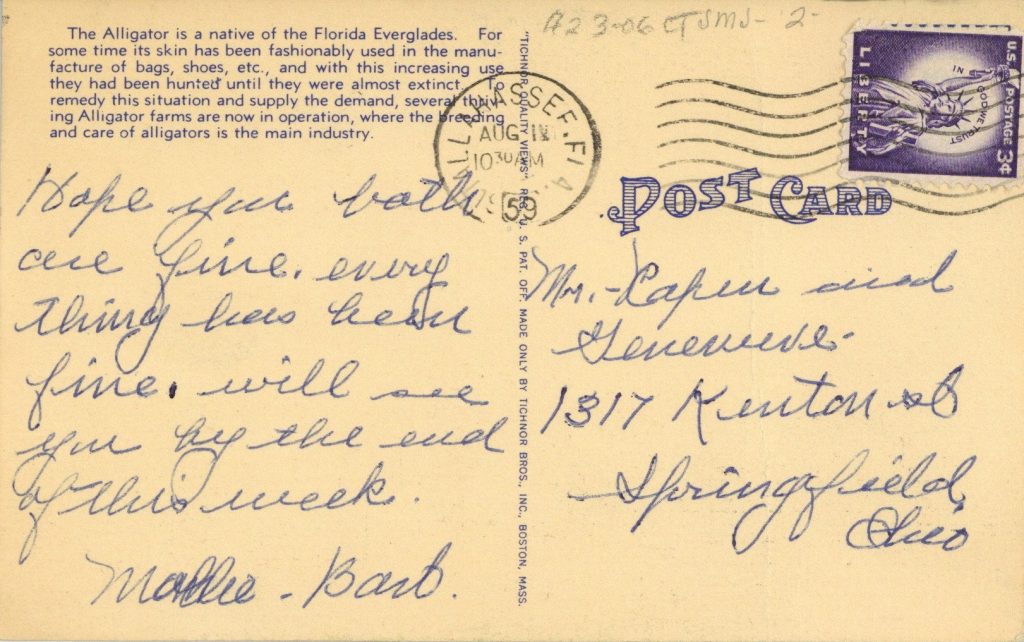 The Alligator is a native of the Florida Everglades. For
some time its skin has been fashionably used in the manu-
facture of bags, shoes, etc., and with this increasing use
they had been hunted until they were almost extinct. To
remedy this situation and supply the demand, several thriv-
ing Alligator farms are now in operation, where the breeding
and care of alligators is the main industry.
Hope you both
are fine. every
thing has been
fine. will see
you by the end
of this week.
- Barb.
"TICHNOR QUALITY VIEWS" REG. U. S. PAT. OFF. MADE ONLY BY TICHNOR BROS., INC., BOSTON, MASS.
A23-06
TALLAHASSEE, FLA.
AUG
10 30 AM
1959
U.S. POSTAGE 3¢
LIBERTY
IN GOD WE TRUST
POST CARD
Mr. - and
Genevieve -
1317 Kenton st
Springfield,
Ohio